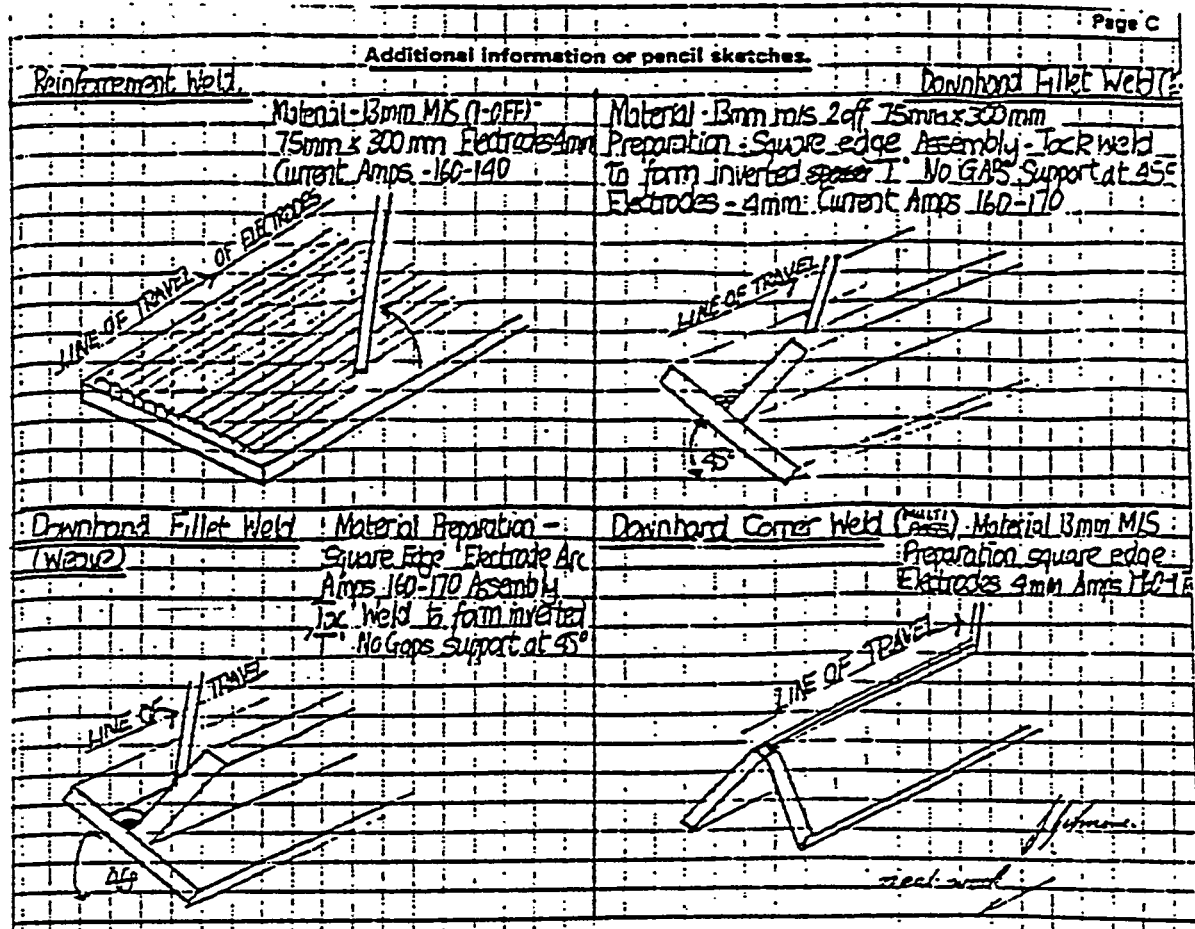 Page C
Additional information or pencil sketches.
Reinforcement Weld.
Material - 13mm M/S (1-OFF)
75mm x 300 mm Electrodes 4mm
Current Amps - 160-140
LINE OF TRAVEL OF ELECTRODES
Downhand Fillet Weld
Material - 13mm m/s 2 off 75mm x 300mm
Preparation - Square edge Assembly - Tack weld
to form inverted T No GAPS Support at 45
Electrodes - 4mm Current Amps 160-170
LINE OF TRAVEL
45°
Downhand Fillet Weld
(Weave)
Material Preparation -
Square Edge Electrode Arc
Amps 160-170 Assembly
Tac Weld to form inverted
'T' No Gaps support at 45°
LINE OF TRAVEL
45
Downhand Corner Weld (MULTI PASS) - Material 13mm M/S
Preparation square edge
Electrodes 4mm Amps 160-
LINE OF TRAVEL
neat work